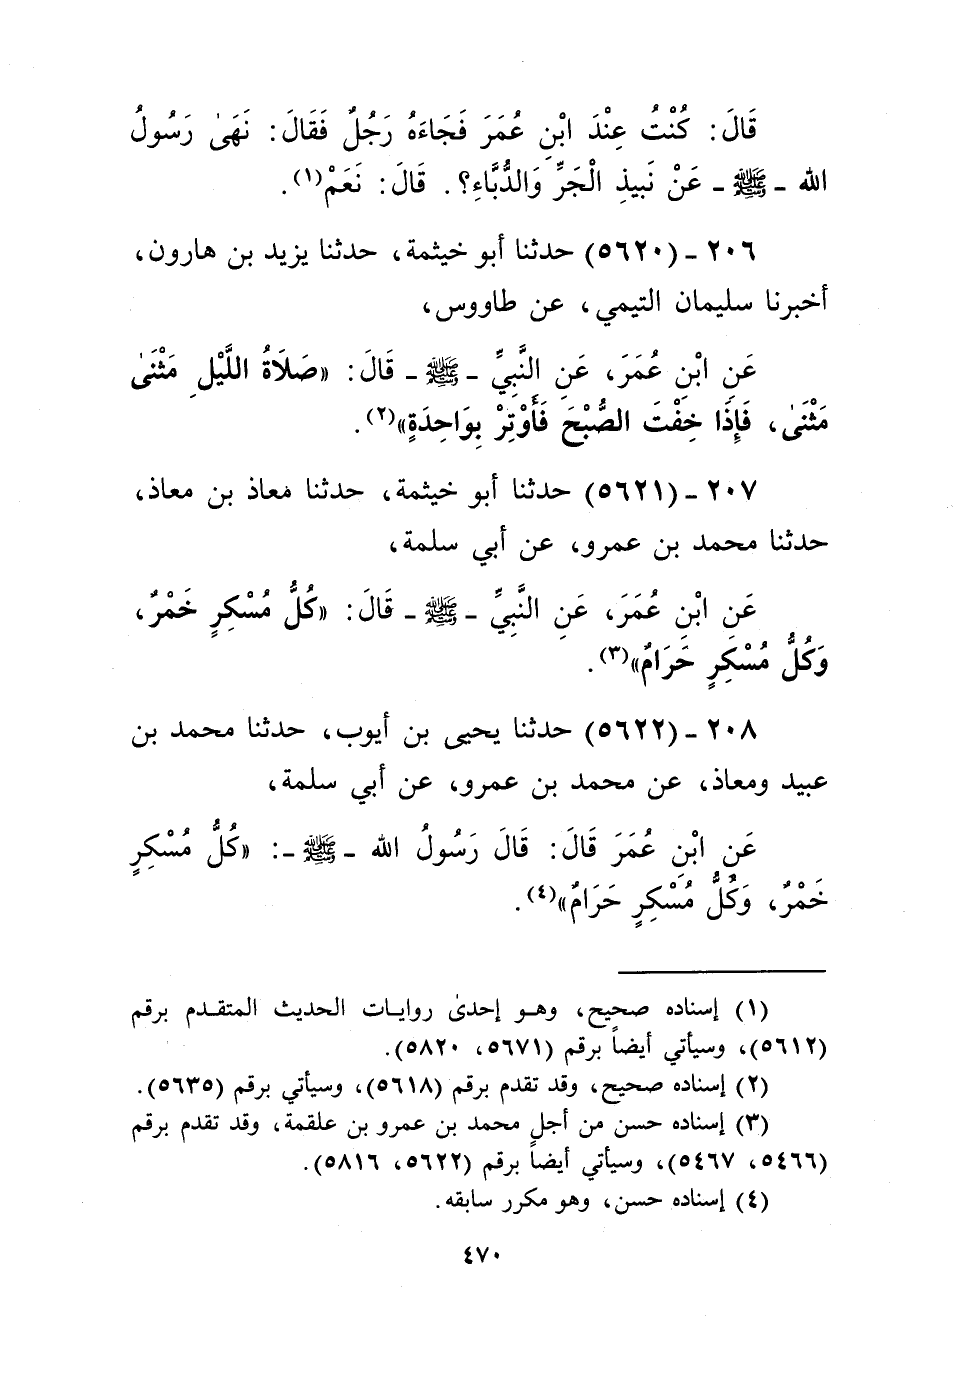 قَالَ: كُنْتُ عِنْدَ ابْنِ عُمَرَ فَجَاءَهُ رَجُلٌ فَقَالَ: نَهَىٰ رَسُولُ
الله ـ ﷺ ـ عَنْ نَبِيذِ الْجَرِّ وَالدُّبَّاءِ؟. قَالَ: نَعَمْ(١).
٢٠٦ ـ (٥٦٢٠) حدثنا أبو خيثمة، حدثنا يزيد بن هارون،
أخبرنا سليمان التيمي، عن طاووس،
عَنِ ابْنِ عُمَرَ، عَنِ النَّبِيِّ ـ ﷺ ـ قَالَ: «صَلَاةُ اللَّيْلِ مَثْنَىٰ
مَثْنَىٰ، فَإِذَا خِفْتَ الصُّبْحَ فَأَوْتِرْ بِوَاحِدَةٍ»(٢).
٢٠٧ ـ (٥٦٢١) حدثنا أبو خيثمة، حدثنا معاذ بن معاذ،
حدثنا محمد بن عمرو، عن أبي سلمة،
عَنِ ابْنِ عُمَرَ، عَنِ النَّبِيِّ ـ ﷺ ـ قَالَ: «كُلُّ مُسْكِرٍ خَمْرٌ،
وَكُلُّ مُسْكِرٍ حَرَامٌ»(٣).
٢٠٨ ـ (٥٦٢٢) حدثنا يحيى بن أيوب، حدثنا محمد بن
عبيد ومعاذ، عن محمد بن عمرو، عن أبي سلمة،
عَنِ ابْنِ عُمَرَ قَالَ: قَالَ رَسُولُ الله ـ ﷺ ـ: «كُلُّ مُسْكِرٍ
خَمْرٌ، وَكُلُّ مُسْكِرٍ حَرَامٌ»(٤).
(١) إسناده صحيح، وهو إحدىٰ روايات الحديث المتقدم برقم
(٥٦١٢)، وسيأتي أيضاً برقم (٥٦٧١، ٥٨٢٠).
(٢) إسناده صحيح، وقد تقدم برقم (٥٦١٨)، وسيأتي برقم (٥٦٣٥).
(٣) إسناده حسن من أجل محمد بن عمرو بن علقمة، وقد تقدم برقم
(٥٤٦٦، ٥٤٦٧)، وسيأتي أيضاً برقم (٥٦٢٢، ٥٨١٦).
(٤) إسناده حسن، وهو مكرر سابقه.
٤٧٠